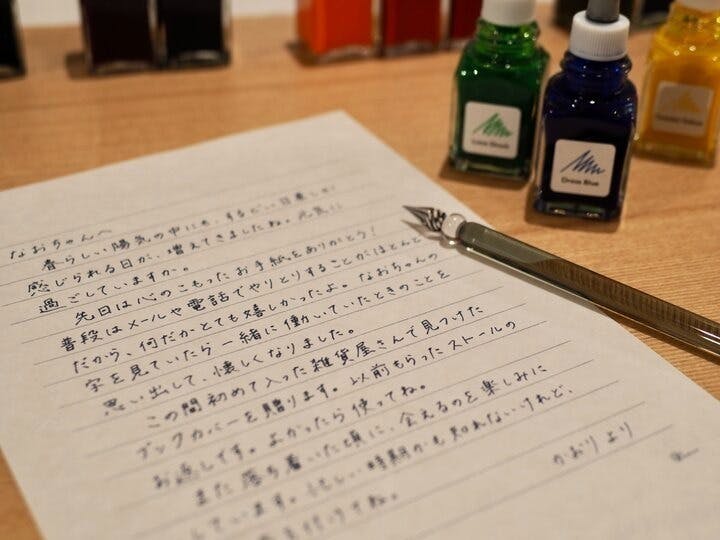 なおちゃんへ
春らしい陽気の中にも、するどい日差しを
感じられる日が、増えてきましたね。元気に
過ごしていますか。
先日は心のこもったお手紙をありがとう！
普段はメールや電話でやりとりすることがほとんど
だから、何だかとても嬉しかったよ。なおちゃんの
字を見ていたら一緒に働いていたときのことを
思い出して、懐しくなりました。
この間初めて入った雑貨屋さんで見つけた
ブックカバーを贈ります。以前もらったストールの
お返しです。よかったら使ってね。
また落ち着いた頃に、会えるのを楽しみに
しています。忙しい時期かも知れないけれど、
気を付けてね。
かおりより
Dress Blue